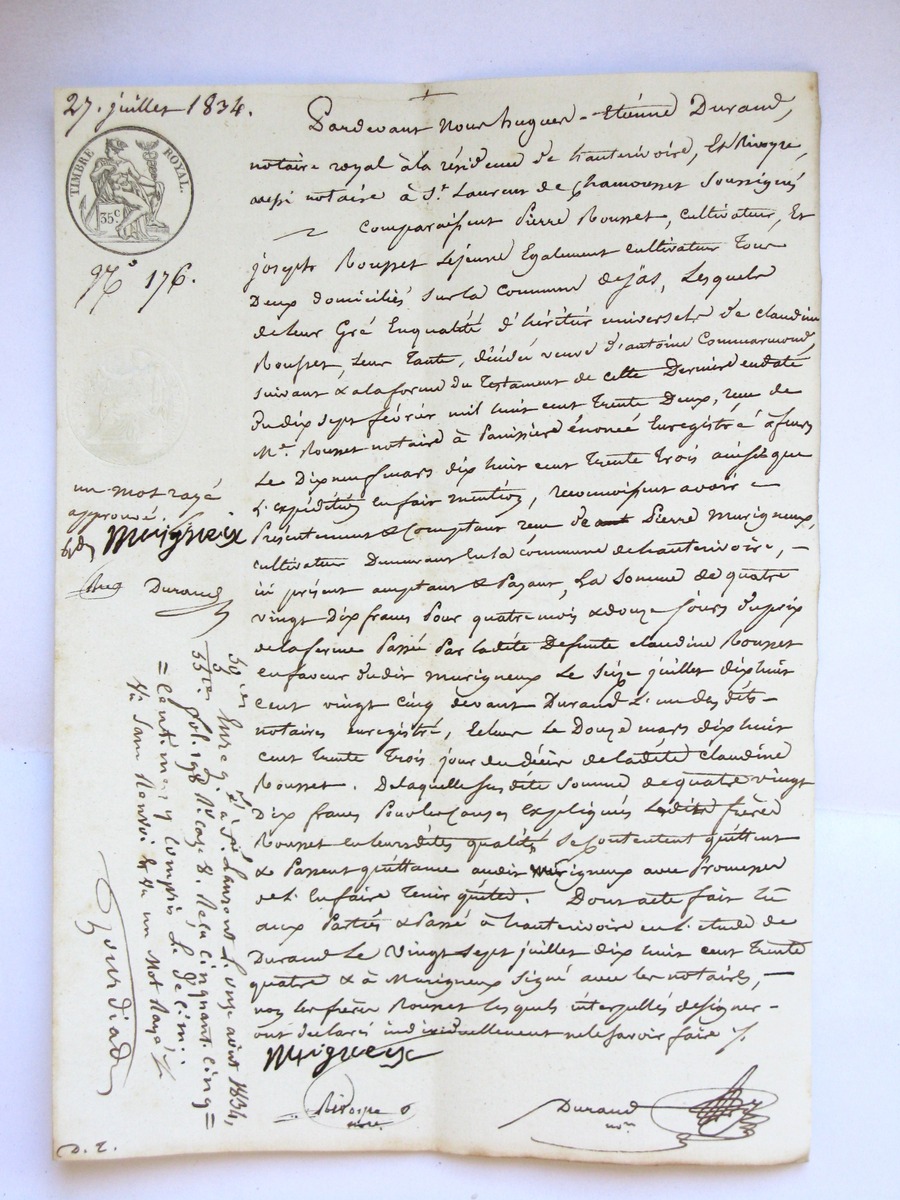 27. juillet 1834.
TIMBRE ROYAL.
35 c.
N° 176.
un mot rayé
approuvé.
Murigneux
Durand
Pardevant Nous hugues - Etienne Durand,
notaire royal à la résidence de hauterivoire, Et Rivoyre,
aussi notaire à St. Laurent de Chamousset Soussignés
Comparaissent Pierre Rousset, cultivateur, Et
joseph Rousset Lejeune Egalement cultivateur Tous
Deux domiciliés sur la Commune de jas, Lesquels
de leur Gré En qualité d'héritiers universels de claudine
Rousset, Leur Tante, décédée veuve d'antoine Commarmond,
suivant & a la forme du Testament de cette Dernière en date
Du dix sept février mil huit cent trente Deux, reçu de
Me. Rousset notaire à Panissière Enregistré à feurs
Le Dix neuf mars dix huit cent trente Trois ainsi que
L'expédition en fait mention, reconnoissent avoir
Présentement & Comptant reçu de Pierre Murigneux,
cultivateur Demeurant En la commune de hauterivoire, -
ici présent acceptant & Payant, La Somme de quatre
vingt Dix francs Pour quatre mois & douze jours du prix
de la ferme Passée Par ladite Defunte claudine Rousset
en faveur dudit Murigneux Le Seize juillet dix huit
cent vingt cinq devant Durand L'un des dits-
notaires enregistré, échue Le Douze mars dix huit
cent trente Trois jour du décès de ladite claudine
Rousset. De laquelle susdite somme de quatre vingt
Dix francs Pour les Causes Expliquées Lesdits frères
Rousset en leurs dites qualités, se Contentent quittent
& Passent quittance audit Murigneux avec Promesse
de L'En faire Tenir quitte. Dont acte fait Lu
aux Parties & Passé à hauterivoire en L'étude de
Durand Le Vingt Sept juillet dix huit cent trente
quatre & à Murigneux Signé avec les notaires, -
non les frères Rousset lesquels interpellés de signer -
ont déclarés individuellement ne le savoir faire ./.
Murigneux
Rivoyre
nore.
Durand
non
50 ces
5
55 ces
Enregé. à St. Laurent L'onze août 1834,
fol. 198 Ro. Case 8. Reçu Cinquante Cinq =
= Centimes y compris Le décime
Sans Renvoi & un Mot Rayé
D. E.